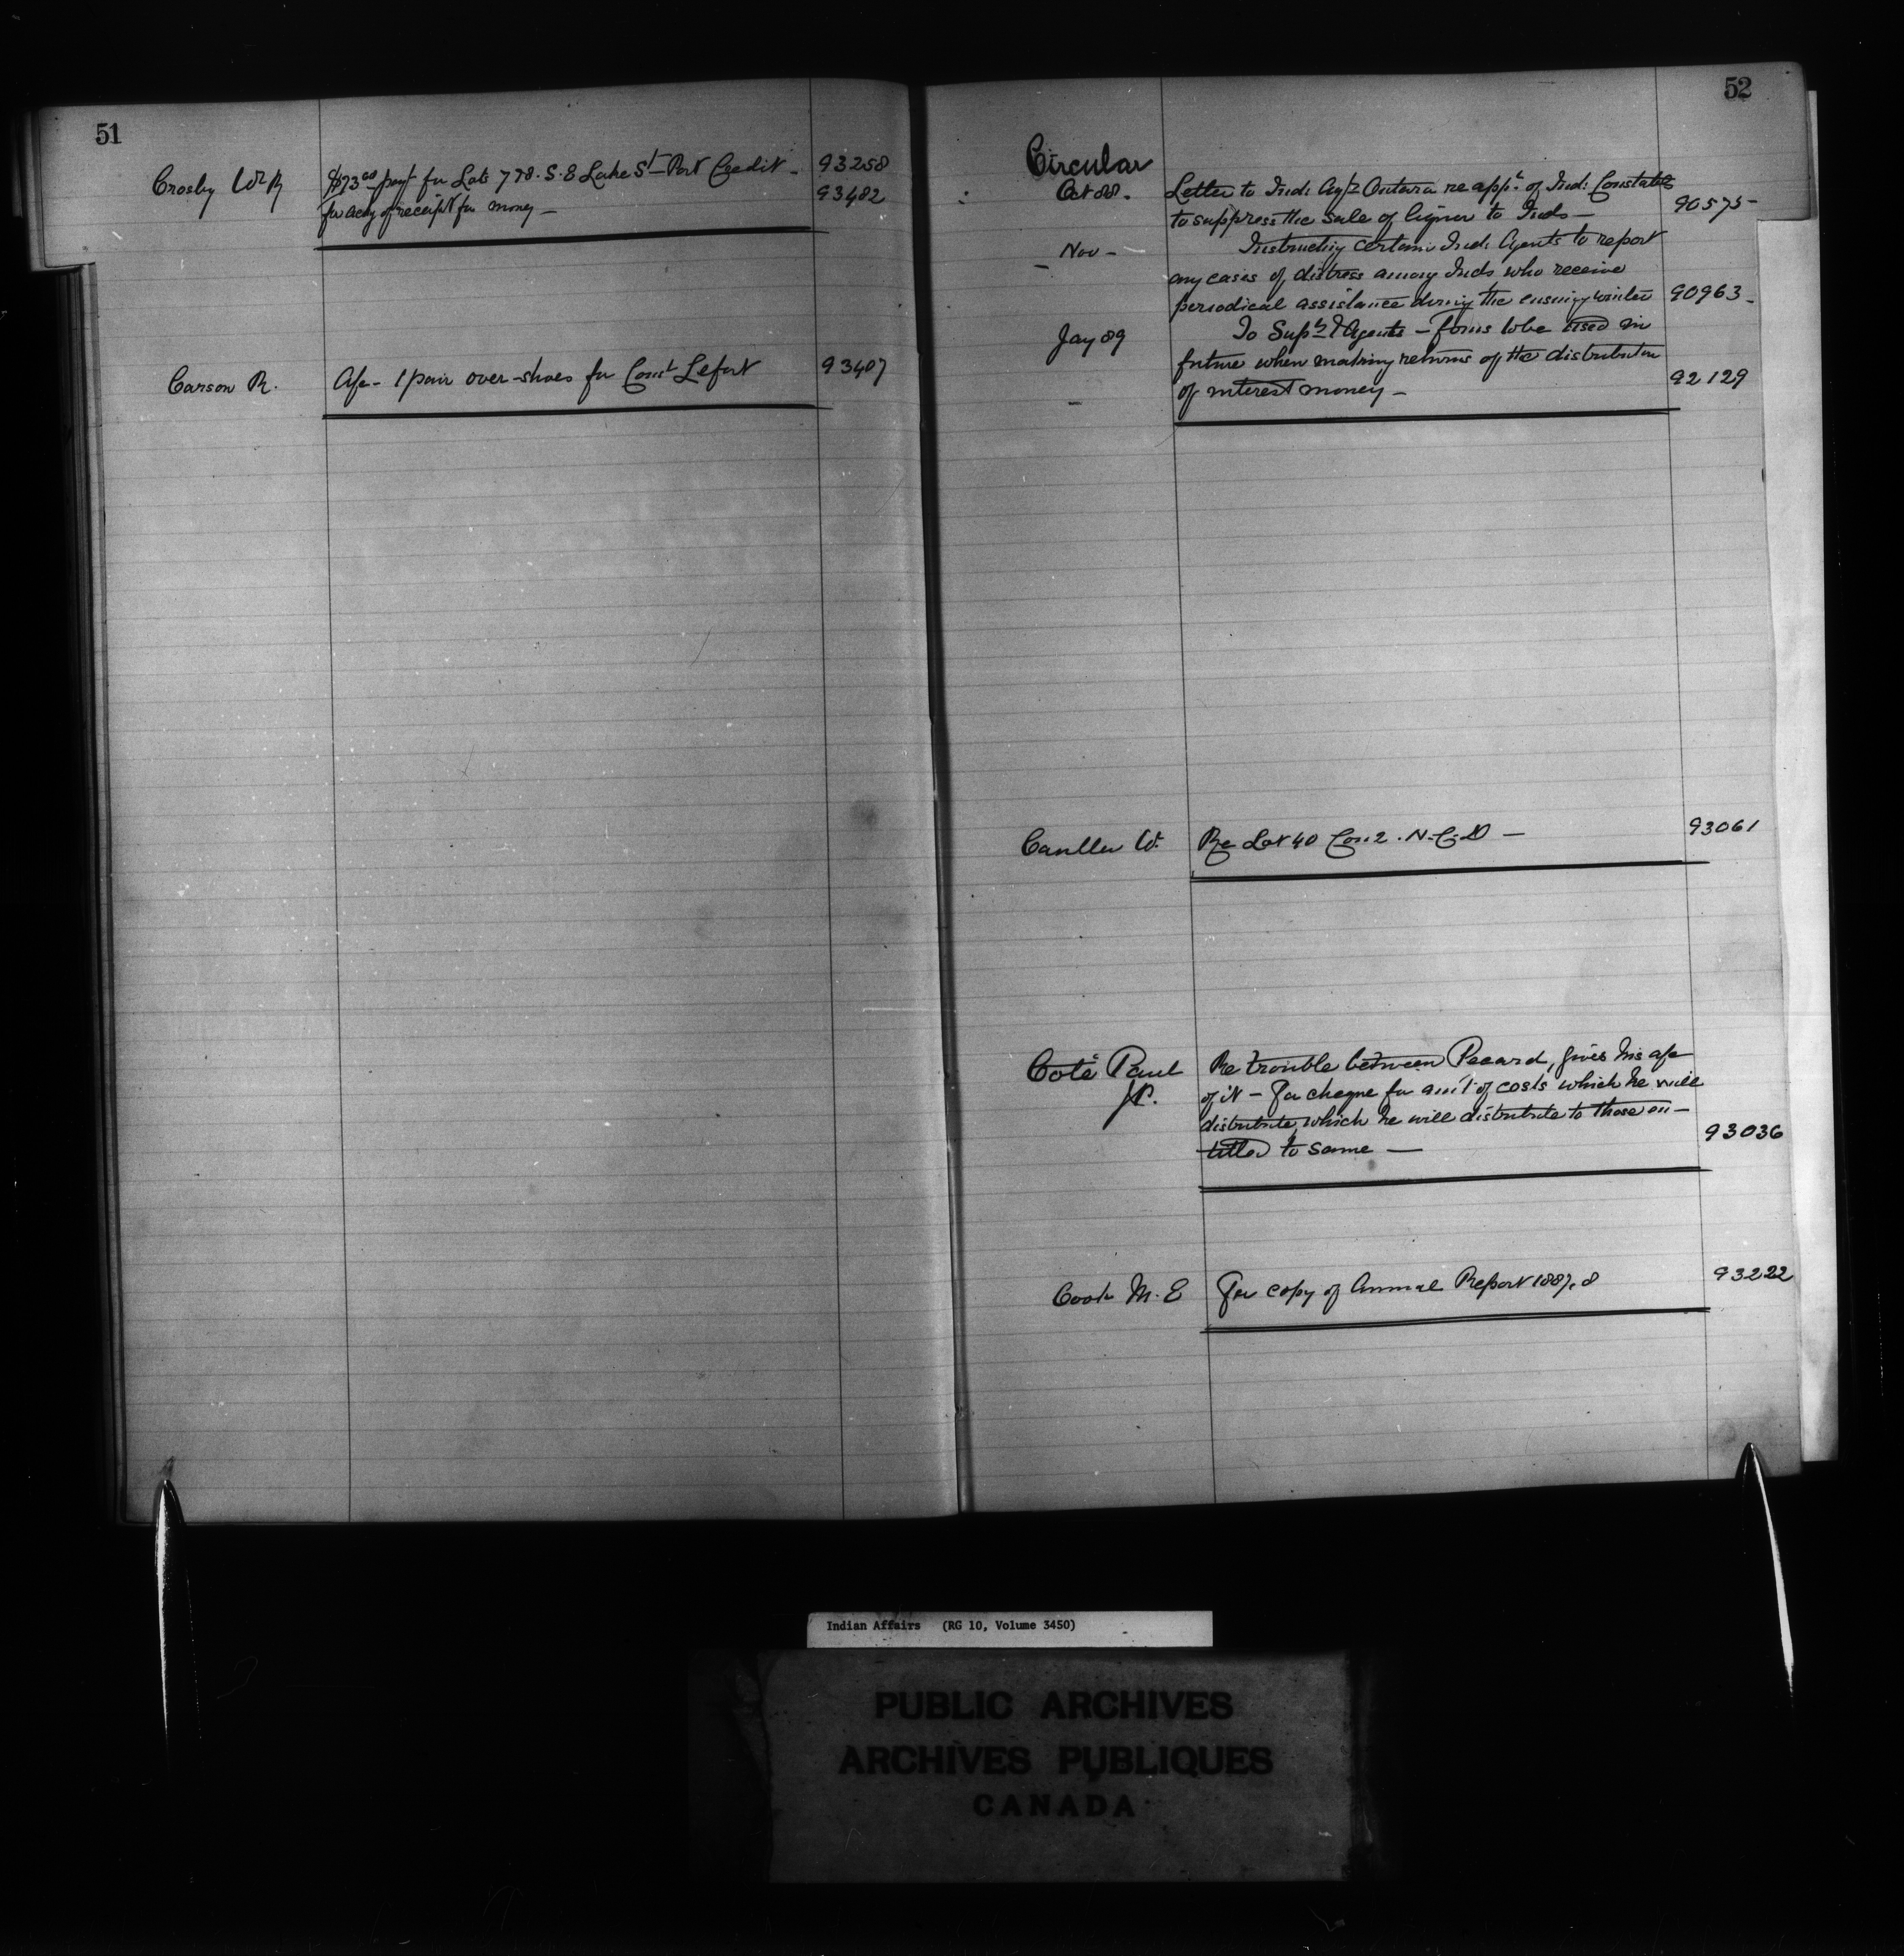 51
Crosby Wm R $73.00 payt for Lots 7 & 8. S. S Lake St - Port Credit - 93258
for ackg of receipt for money - 93482
Carson R. A/c - 1 pair over-shoes for Const Lefort 93407
52
Circular
Oct 88. Letter to Ind: Agts Ontario re appt of Ind: Constables
to suppress the sale of liquor to Inds - 90575 -
- Nov - Instructing certain Ind: Agents to report
any cases of distress among Inds who receive
periodical assistance during the ensuing winter 90963 -
Jany 89 To Supts & Agents - forms to be used in
future when making returns of the distribution
of interest money - 92129
W. Re Lot 40 Con: 2. N. C. D - 93061
Coté Paul Re trouble between Pecard, gives his a/c
J.P. of it - For cheque for amt of costs which he will
distribute, which he will distribute to those en-
titled to same - 93036
Cook M. E For copy of Annual Report 1887.8 93222
Indian Affairs (RG 10, Volume 3450)
PUBLIC ARCHIVES
ARCHIVES PUBLIQUES
CANADA